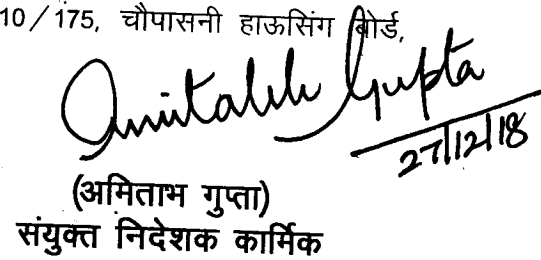 10/175, चौपासनी हाऊसिंग बोर्ड,
Amitabh Gupta
27/12/18
(अमिताभ गुप्ता)
संयुक्त निदेशक कार्मिक